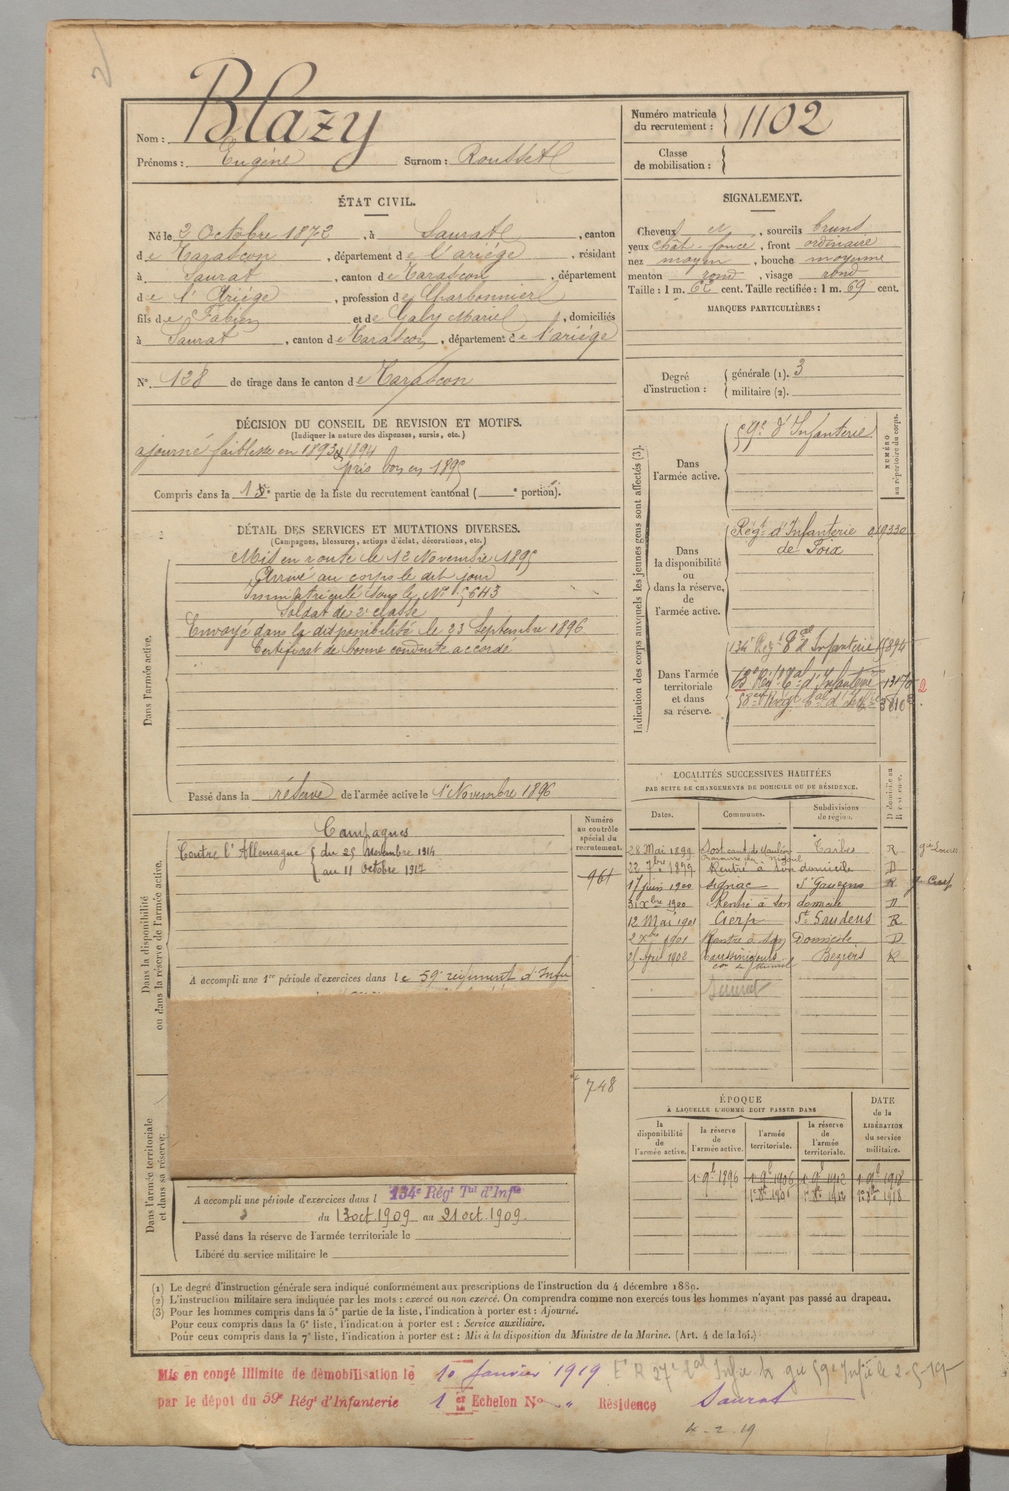 Nom : Blazy
Prénoms : Eugène Surnom : Rousset
Numéro matricule du recrutement : 1102
Classe de mobilisation :
ÉTAT CIVIL.
Né le 2 Octobre 1872, à Saurat, canton
de Tarascon, département de l'ariége, résidant
à Saurat, canton de Tarascon, département
de l'Ariége, profession de Charbonnier
fils de Fabien et de Galy Marie, domiciliés
à Saurat, canton de Tarascon, département de l'ariége
N° 128 de tirage dans le canton de Tarascon
SIGNALEMENT.
Cheveux et sourcils bruns
yeux chât-foncé, front ordinaire
nez moyen, bouche moyenne
menton rond, visage rond
Taille : 1 m. 62 cent. Taille rectifiée : 1 m. 69 cent.
MARQUES PARTICULIÈRES :
Degré d'instruction : générale (1). 3
militaire (2).
DÉCISION DU CONSEIL DE REVISION ET MOTIFS.
(Indiquer la nature des dispenses, sursis, etc.)
ajourné faiblesse en 1893 et 1894
pris bon en 1895
Compris dans la partie de la liste du recrutement cantonal ( portion).
DÉTAIL DES SERVICES ET MUTATIONS DIVERSES.
(Campagnes, blessures, actions d'éclat, décorations, etc.)
Dans l'armée active.
Mis en route le 12 Novembre 1895
Arrivé au corps le dit jour
Immatriculé sous le N° 5643
Soldat de 2e classe
Envoyé dans la disponibilité le 23 Septembre 1896
Certificat de bonne conduite accordé
Passé dans la réserve de l'armée active le 1 Novembre 1896
Indication des corps auxquels les jeunes gens sont affectés (3).
NUMÉRO au répertoire du corps.
Dans l'armée active.
59e d'Infanterie
Dans la disponibilité ou dans la réserve de l'armée active.
Régt d'Infanterie
de Foix
Dans l'armée territoriale et dans sa réserve.
134e Régt Tal d'Infanterie
Dans la disponibilité ou dans la réserve de l'armée active.
Campagnes
Contre l'Allemagne du 25 Novembre 1914
au 11 Octobre 1917
Numéro au contrôle spécial du recrutement.
961
748
A accompli une 1re période d'exercices dans le 59e régiment d'Infie
LOCALITÉS SUCCESSIVES HABITÉES
PAR SUITE DE CHANGEMENTS DE DOMICILE OU DE RÉSIDENCE.
Dates. Communes. Subdivisions de région. D domicile ou R résidence.
28 Mai 1899 Tarbes R
22 7bre 1899 Rentré à son domicile D
17 juin 1900 Signac St Gaudens R
31 xbre 1900 Rentré à son domicile D
12 Mai 1901 Cierp St Gaudens R
2 xbre 1901 Rentré à son Domicile D
Béziers R
Saurat
ÉPOQUE
À LAQUELLE L'HOMME DOIT PASSER DANS
DATE de la LIBÉRATION du service militaire.
la disponibilité de l'armée active. la réserve de l'armée active. l'armée territoriale. la réserve de l'armée territoriale.
1 9bre 1896 1 9bre 1906 1 9bre 1912 1 9bre 1918
Dans l'armée territoriale et dans sa réserve.
A accompli une période d'exercices dans l 134e Régt Tal d'Infie
du 13 oct. 1909 au 21 oct. 1909.
Passé dans la réserve de l'armée territoriale le
Libéré du service militaire le
(1) Le degré d'instruction générale sera indiqué conformément aux prescriptions de l'instruction du 4 décembre 1889.
(2) L'instruction militaire sera indiquée par les mots : exercé ou non exercé. On comprendra comme non exercés tous les hommes n'ayant pas passé au drapeau.
(3) Pour les hommes compris dans la 5e partie de la liste, l'indication à porter est : Ajourné.
Pour ceux compris dans la 6e liste, l'indication à porter est : Service auxiliaire.
Pour ceux compris dans la 7e liste, l'indication à porter est : Mis à la disposition du Ministre de la Marine. (Art. 4 de la loi.)
Mis en congé illimité de démobilisation le 10 Janvier 1919
par le dépôt du 59e Régt d'Infanterie 1er Echelon No " Résidence Saurat
4-2-19